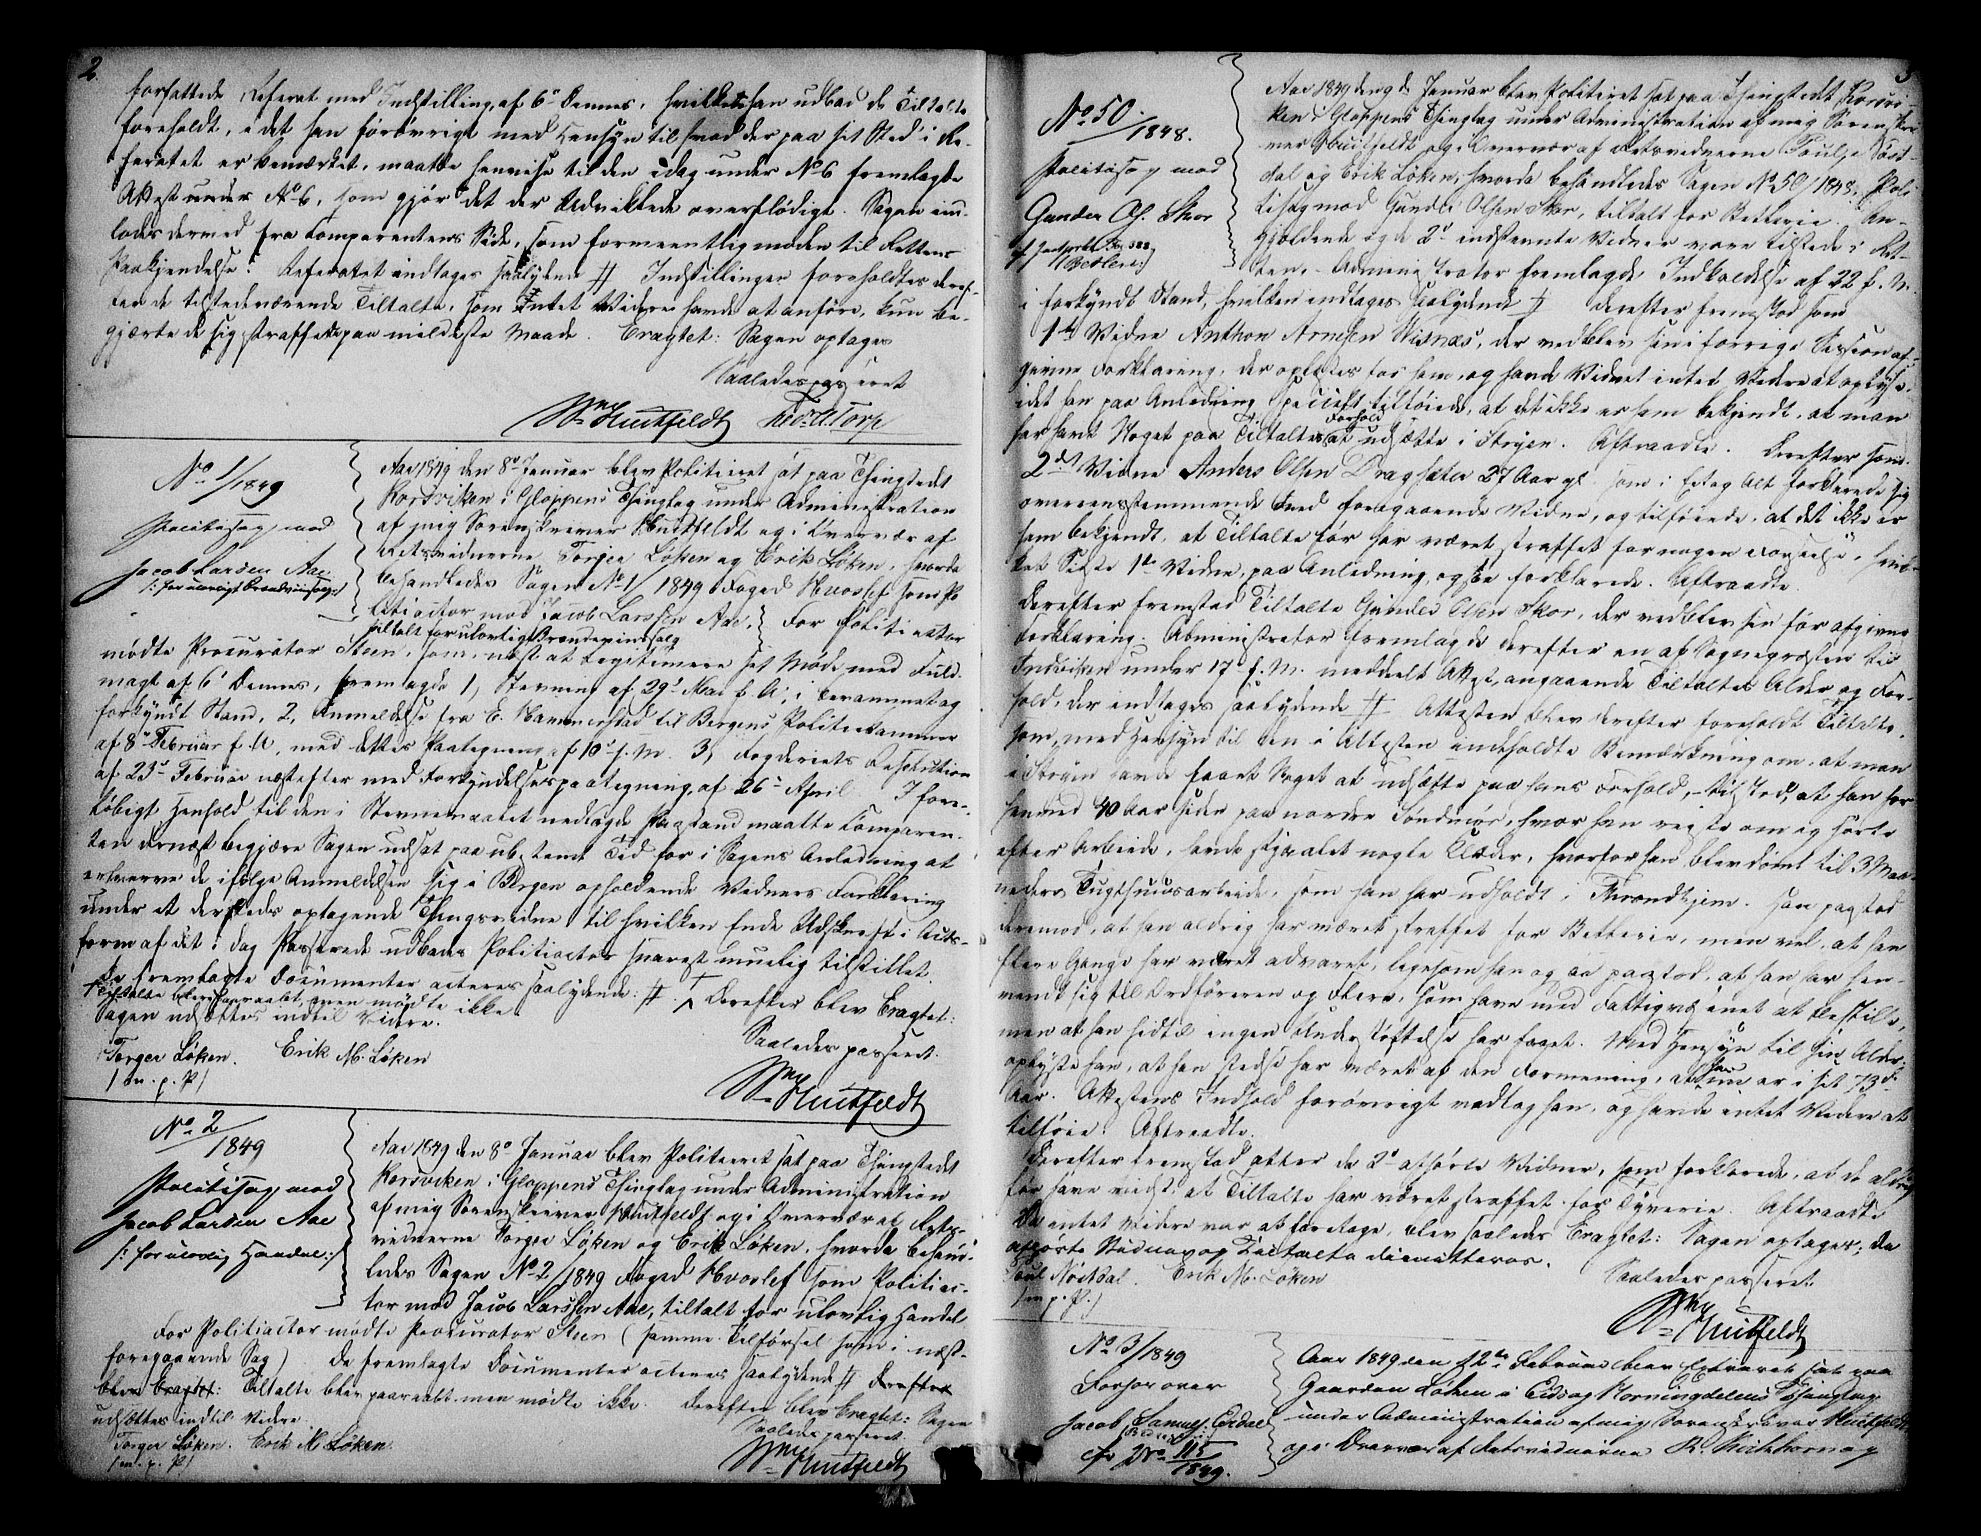 2.
forfattede Referat med Indstilling af 6te Dennes, hvilket han udbad de Tiltalte
foreholdt, i det han forøvrigt med Hensyn til hvad der paa sit Sted i Re-
feratet er bemærket, maatte henvise til den idag under No 6 fremlagte
Attest under No 6, som gjør det der Udviklede overflødigt. Sagen ind-
lodes dermed fra Comparentens Side, som formeentlig moden til Rettens
Paakjendelse. Referatet indtages saalydende # Indstillingen foreholdtes deref-
ter de tilstedeværende Tiltalte, som Intet Videre havde at anføre, kun be-
gjærte de sig straffede paa mildeste Maade. Eragtet: Sagen optages
Saaledes passeret
Wm Huitfeldt Fredr. U. Torp
No 1/1849
Politisag mod
Jacob Larsen Aae
/: for ulovligt Brændeviinssalg :/
Aar 1849 den 8de Januar blev Politiret sat paa Thingstedet
Korsviken i Gloppens Thinglag under Administration
af mig Sorenskriver Huitfeldt og i Overvær af
Retsvidnerne Torger Løken og Erik Løken, hvorda
behandledes Sagen No 1/1849 Foged Hvoslef som Po-
litiactor mod Jacob Larssen Aae,
tiltalt for ulovligt Brændeviinssalg
For Politiactor
mødte Procurator Steen, som, næst at legitimere sit Møde med Fuld-
magt af 6te Dennes, fremlagde 1, Stevning af 29de Mai f. A. i berammet og
forkyndt Stand, 2, Anmeldelse fra E. Hammerstad til Bergens Politiekammer
af 8de Februar f. A, med dettes Paategning af 10de s. M. 3, Fogderiets Resolution
af 23de Februar næstefter med Forkyndelsespaategning af 26de April. I fore-
løbigt Henhold til den i Stevnemaalet nedlagde Paastand maatte Comparen-
ten dernæst begjære Sagen udsat paa ubestemt Tid for i Sagens Anledning at
erhverve de ifølge Anmeldelsen sig i Bergen opholdende Vidners Forklaring
under et dersteds optagende Thingsvidne til hvilken Ende Udskrift i Acts-
form af det i dag Passerede udbades Politiactor snarest muelig tilstillet.
De fremlagte Documenter acteres saalydende: # Derefter blev Eragtet:
Tiltalte blev paaraabt, men mødte ikke
Sagen udsættes indtil Videre.
Saaledes passeret.
Torger Løken. Erik M. Løken
/m. p. P/
Wm Huitfeldt
No 2/
1849
Politisag mod
Jacob Larsen Aae
/: for ulovlig Handel :/
Aar 1849 den 8de Januar blev Politieret sat paa Thingstedet
Korsviken i Gloppens Thinglag under Administration
af mig Sorenskriver Huitfeldt og i Overvær af Rets-
vidnerne Torger Løken og Erik Løken, hvorda behand-
ledes Sagen No 2/1849 Foged Hvoslef som Politiac-
tor mod Jacob Larssen Aae, tiltalt for ulovlig Handel
For Politiactor mødte Procurator Steen (samme Tilførsel som i næst-
foregaaende Sag) De fremlagte Documenter acteres saalydende # Derefter
blev Eragtet: Tiltalte blev paaraabt men mødte ikke. Derefter blev Eragtet: Sagen
udsættes indtil Videre.
Saaledes passeret.
Torger Løken. Erik M Løken.
/m. p. P/
Wm Huitfeldt
3
No 50.
/1848.
Politisag mod
Gunder Ols. Skor
Betleri :/
Aar 1849 den 9de Januar blev Politiret sat paa Thingstedet Korsvi-
ken i Gloppens Thinglag under Administration af mig Sorenskri-
ver Huitfeldt og i Overvær af Retsvidnerne
dal og Erik Løken, hvorda behandledes Sagen No 50/1848, Poli-
tisag mod Gunder Olsen Skor, tiltalt for Betterie. An-
gjældende og de 2de indstevnte Vidner vare tilstede i Ret-
ten. Administrator fremlagde Indkaldelse af 22 f. M.
i forkyndt Stand, hvilken indtages saalydende # Derefter fremstod som
1te Vidne Anthon Arnesen Hisnæs, der vedblev sin i forrige Session af-
givne Forklaring, der oplæstes for ham, og havde Vidnet intet Videre at oplyse,
idet han paa Anledning specielt tilføiede, at det ikke er ham bekjendt, at man
har havt Noget paa Tiltaltes Forhold at udsætte i Stryen. Aftraadte. Derefter som
2det Vidne Anders Olsen Dragsæter 27 Aar gl. som i Eet og Alt forklarede sig
overeensstemmende med foregaaende Vidne, og tilføiede, at det ikke er
ham bekjendt, at Tiltalte før har været straffet for nogen Forseelse, hvil-
ket Sidste 1te Vidne, paa Anledning, ogsaa forklarede. Aftraadte.
Derefter fremstod Tiltalte Gunder Olsen Skor, der vedblev sin før afgivne
Forklaring. Administrator fremlagde derefter en af Sognepræsten til
Indviken under 17 f. M. meddeelt Attest, angaaende Tiltaltes Alder og For-
hold, der indtages saalydende # Attesten blev derefter foreholdt Tiltalte,
som, med Hensyn til den i Attesten indeholdte Bemærkning om, at man
i Stryen havde havt Noget at udsætte paa hans Forhold, tilstod, at han for
henved 40 Aar siden paa nordre Søndmør, hvor han reiste om og søgte
efter Arbeide, havde stjaalet nogle Klæder, hvorfor han blev dømt til 3 Maa-
neders Tugthuusarbeide, som han har udholdt i Throndhjem. Han paastod
derimod, at han aldrig har været straffet for Betlerie, men vel, at han
flere Gange har været advaret, ligesom han og saa paastod, at han har hen-
vendt sig til Ordføreren og Flere, som have med Fattigvæsenet at bestille,
men at han hidtil ingen Understøttelse har faaet. Med Hensyn til sin Alder
oplyste han, at han stedse har været af den Formening, at han er i sit 73de
Aar. Attestens Indhold forøvrigt vedtog han, og havde intet Videre at
tilføie. Aftraadte.
Derefter fremstod atter de 2de afhørte Vidner, som forklarede, at de aldrig
før have vidst, at Tiltalte har været straffet for Tyverie. Aftraadte
Da intet videre var at foretage, blev saaledes Eragtet: Sagen optages; de
afhørte Vidner og Tiltalte dimitteres.
Saaledes passeret.
Erik M. Løken
/m. p. P./
Wm Huitfeldt
No 3/1849
Forhør over
Jacob Samuels. Eidal
No 115
1849.
Aar 1849 den 12te Februar blev Extraret sat paa
Gaarden Løken i Eids og Hornindalens Thinglag
under Administration af mig Sorenskriver Huitfeldt
og i Overvær af Retsvidnerne